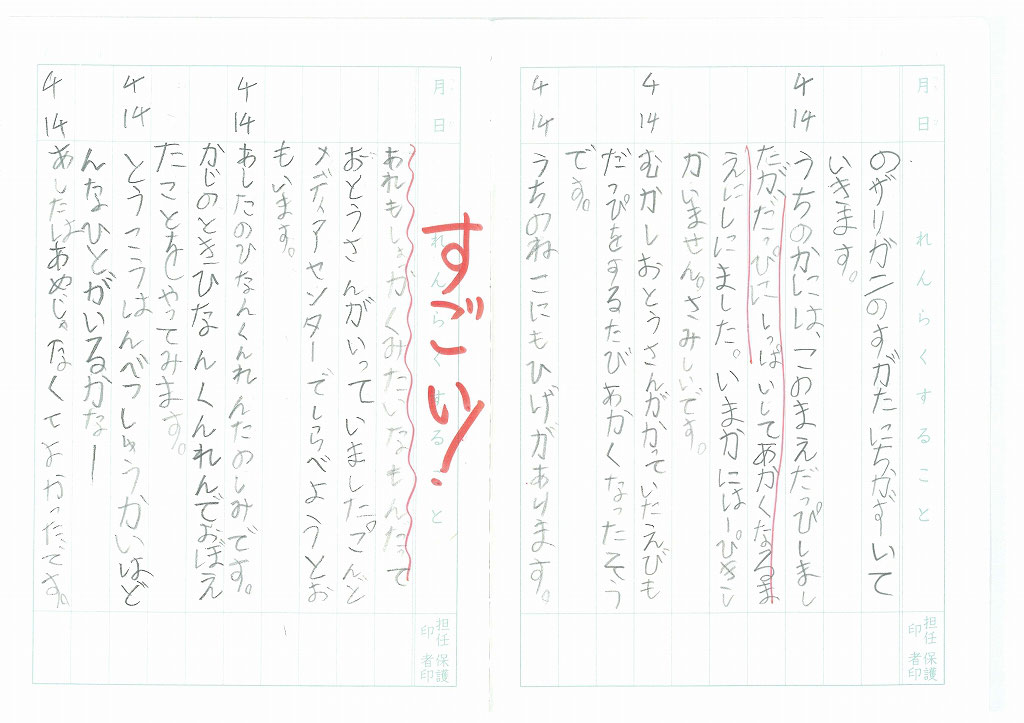 月 日 れんらくすること 担任印 保護者印
のザリガニのすがたにちかずいて
いきます。
4 14 うちのかには、このまえだっぴしまし
たが、だっぴにしっぱいしてあかくなるま
えにしにました。いまかには一ぴきし
かいません。さみしいです。
4 14 むかしおとうさんがかっていたえびも
だっぴをするたびあかくなったそう
です。
4 14 うちのねこにもひげがあります。
月 日 れんらくすること 担任印 保護者印
すごい!
あれもしょっかくみたいなもんだって
おとうさんがいっていました。こんど
メディアセンターでしらべようとお
もいます。
4 14 あしたのひなんくんれんたのしみです。
かじのときひなんくんれんでおぼえ
たことをしやってみます。
4 14 とうこうはんべつしゅうかいはど
んなひとがいるかなー
4 14 あしたはあめじゃなくてよかったです。